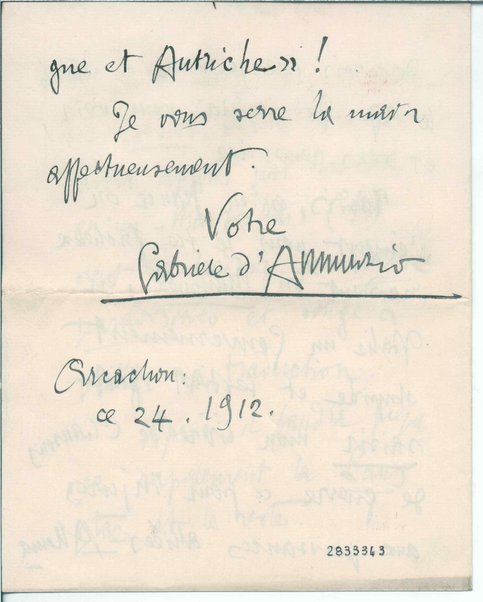 gne et Autriche » !
Je vous serre la main
affectueusement.
Votre
Gabriele d'Annunzio
Arcachon:
ce 24. 1912.
2833343